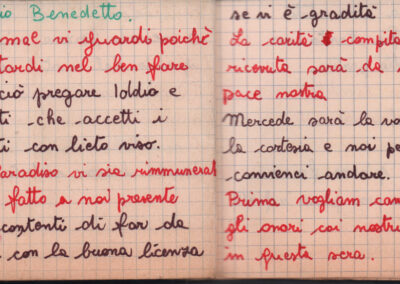 io Benedetto.
mal vi guardi poichè
tardi nel ben fare
ciò pregare Iddio e
ti che accetti i
ti con lieto viso.
Paradiso vi sia rimmunerat
fatto a noi presente
contenti di far da
con la buona licenza
se vi è gradita
La carità compita
ricevuta sarà da
pace nostra
Mercede sarà la vo
la cortesia e noi po
convienci andare.
Prima vogliam can
gli onori coi nostri
in questa sera.